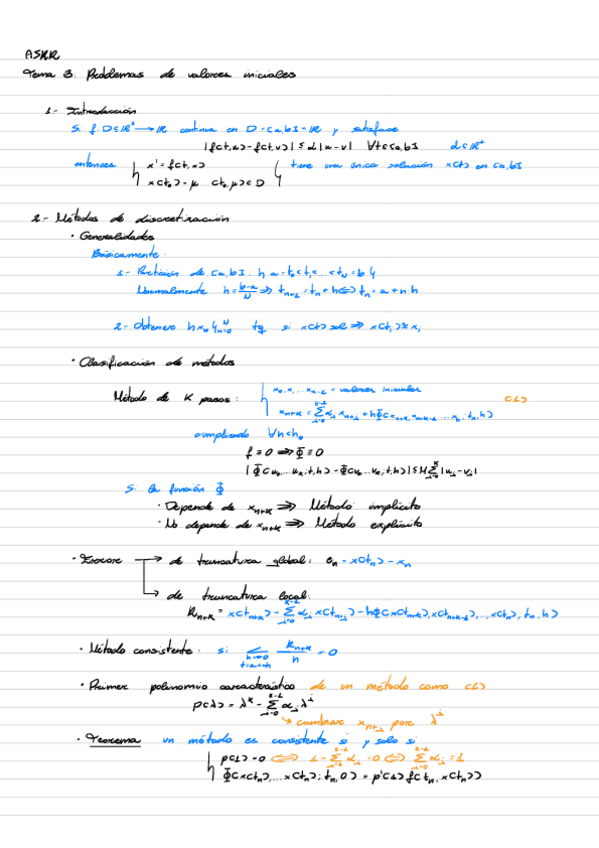 ASNR
Tema 3: Problemas de valores iniciales
1.- Introducción
Si f: D⊆ℝ² → ℝ continua en D=[a,b]×ℝ y satisface
|f(t,u)-f(t,v)| ≤ L|u-v| ∀t∈[a,b] L∈ℝ⁺
entonces { x'=f(t,x) x(t₀)=μ (t₀,μ)∈D } tiene una única solución x(t) en [a,b]
2.- Métodos de discretización
· Generalidades
Básicamente:
1- Partición de [a,b]. {a=t₀<t₁<...<t_N=b}
Normalmente h=(b-a)/N ⇒ t_{n+1}=t_n+h ⇔ t_n=a+nh
2- Obtener {x_n}_{n=0}^N tq si x(t) sol ⇒ x(t_i)≈x_i
· Clasificación de métodos
Método de K pasos: { x₀,x₁,...x_{k-1} = valores iniciales
x_{n+k}=Σ_{j=0}^{k-1} α_j x_{n+j}+hΦ(x_{n+k},x_{n+k-1},...,x_n;t_n,h) (1)
cumpliendo ∀h<h₀
f≡0 ⇒ Φ≡0
|Φ(u₀,...u_k;t,h)-Φ(v₀,...v_k;t,h)| ≤ M Σ_{j=0}^{k} |u_j-v_j|
Si la función Φ
· Depende de x_{n+k} ⇒ Método implícito
· No depende de x_{n+k} ⇒ Método explícito
· Errores → de truncatura global: e_n = x(t_n)-x_n
→ de truncatura local:
R_{n+k} = x(t_{n+k})-Σ_{j=0}^{k-1} α_j x(t_{n+j})-hΦ(x(t_{n+k}),x(t_{n+k-1}),...,x(t_n);t_n,h)
· Método consistente: si lim_{h→0, t=a+nh} R_{n+k}/h = 0
· Primer polinomio característico de un método como (1)
p(λ)=λ^k-Σ_{j=0}^{k-1} α_j λ^j
↳ cambiar x_{n+j} por λ^j
· Teorema un método es consistente si y solo si
{ p(1)=0 ⇔ 1-Σ_{j=0}^{k-1} α_j=0 ⇔ Σ_{j=0}^{k-1} α_j=1
Φ(x(t_n),...x(t_n);t_n,0)=p'(1)f(t_n,x(t_n))